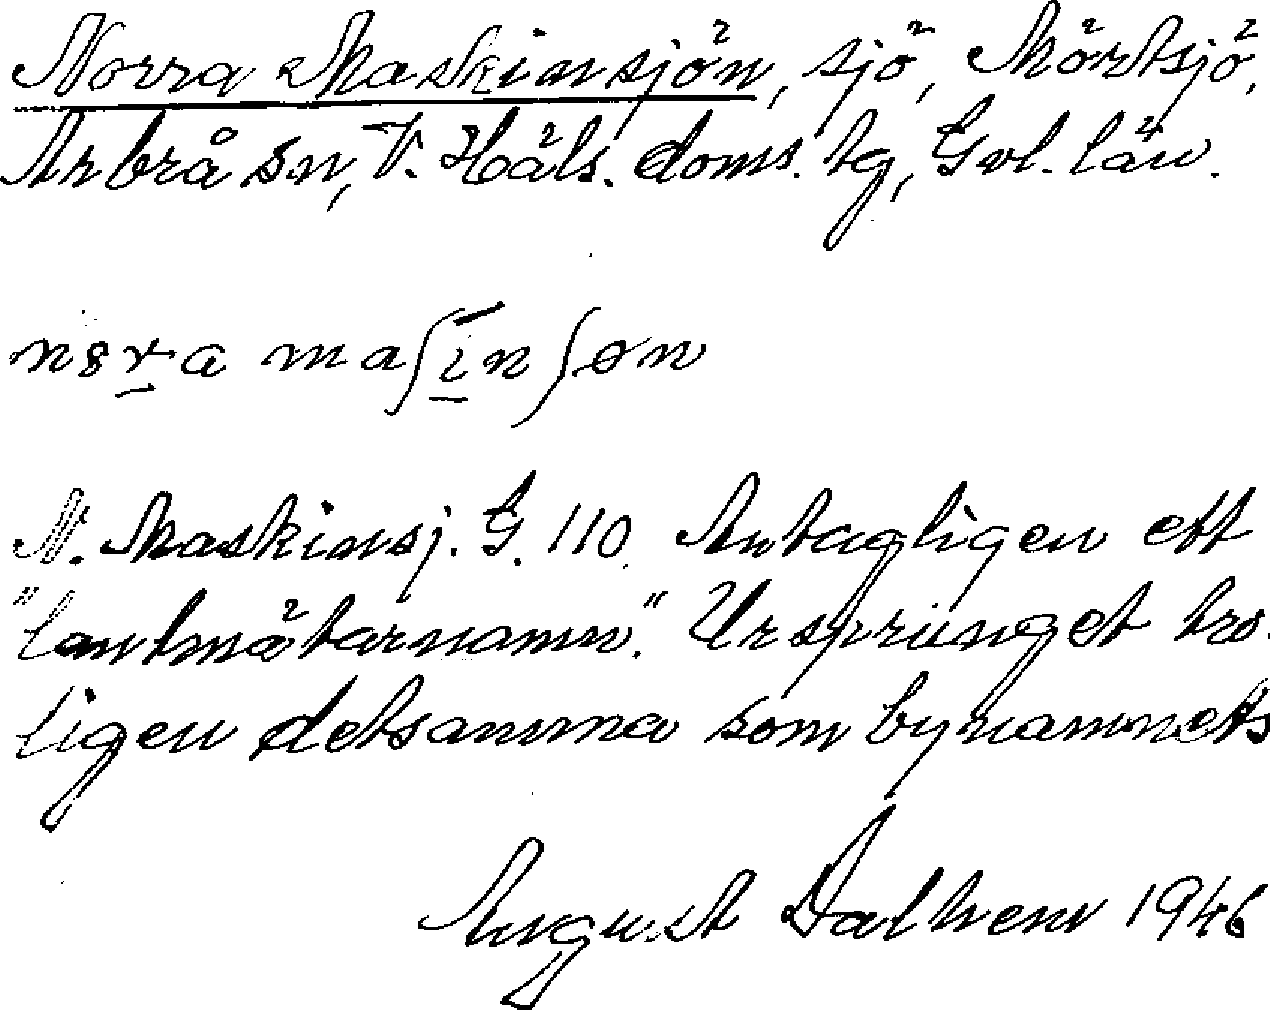 Norra Maskinsjön, sjö, Mörtsjö,
Arbrå sn, V. Häls. doms. tg, Gvl. län.
N. Maskinsj. G. 110. Antagligen ett
"lantmätarnamn." Ursprunget tro-
ligen detsamma som bynamnets
August Dalhem 1946